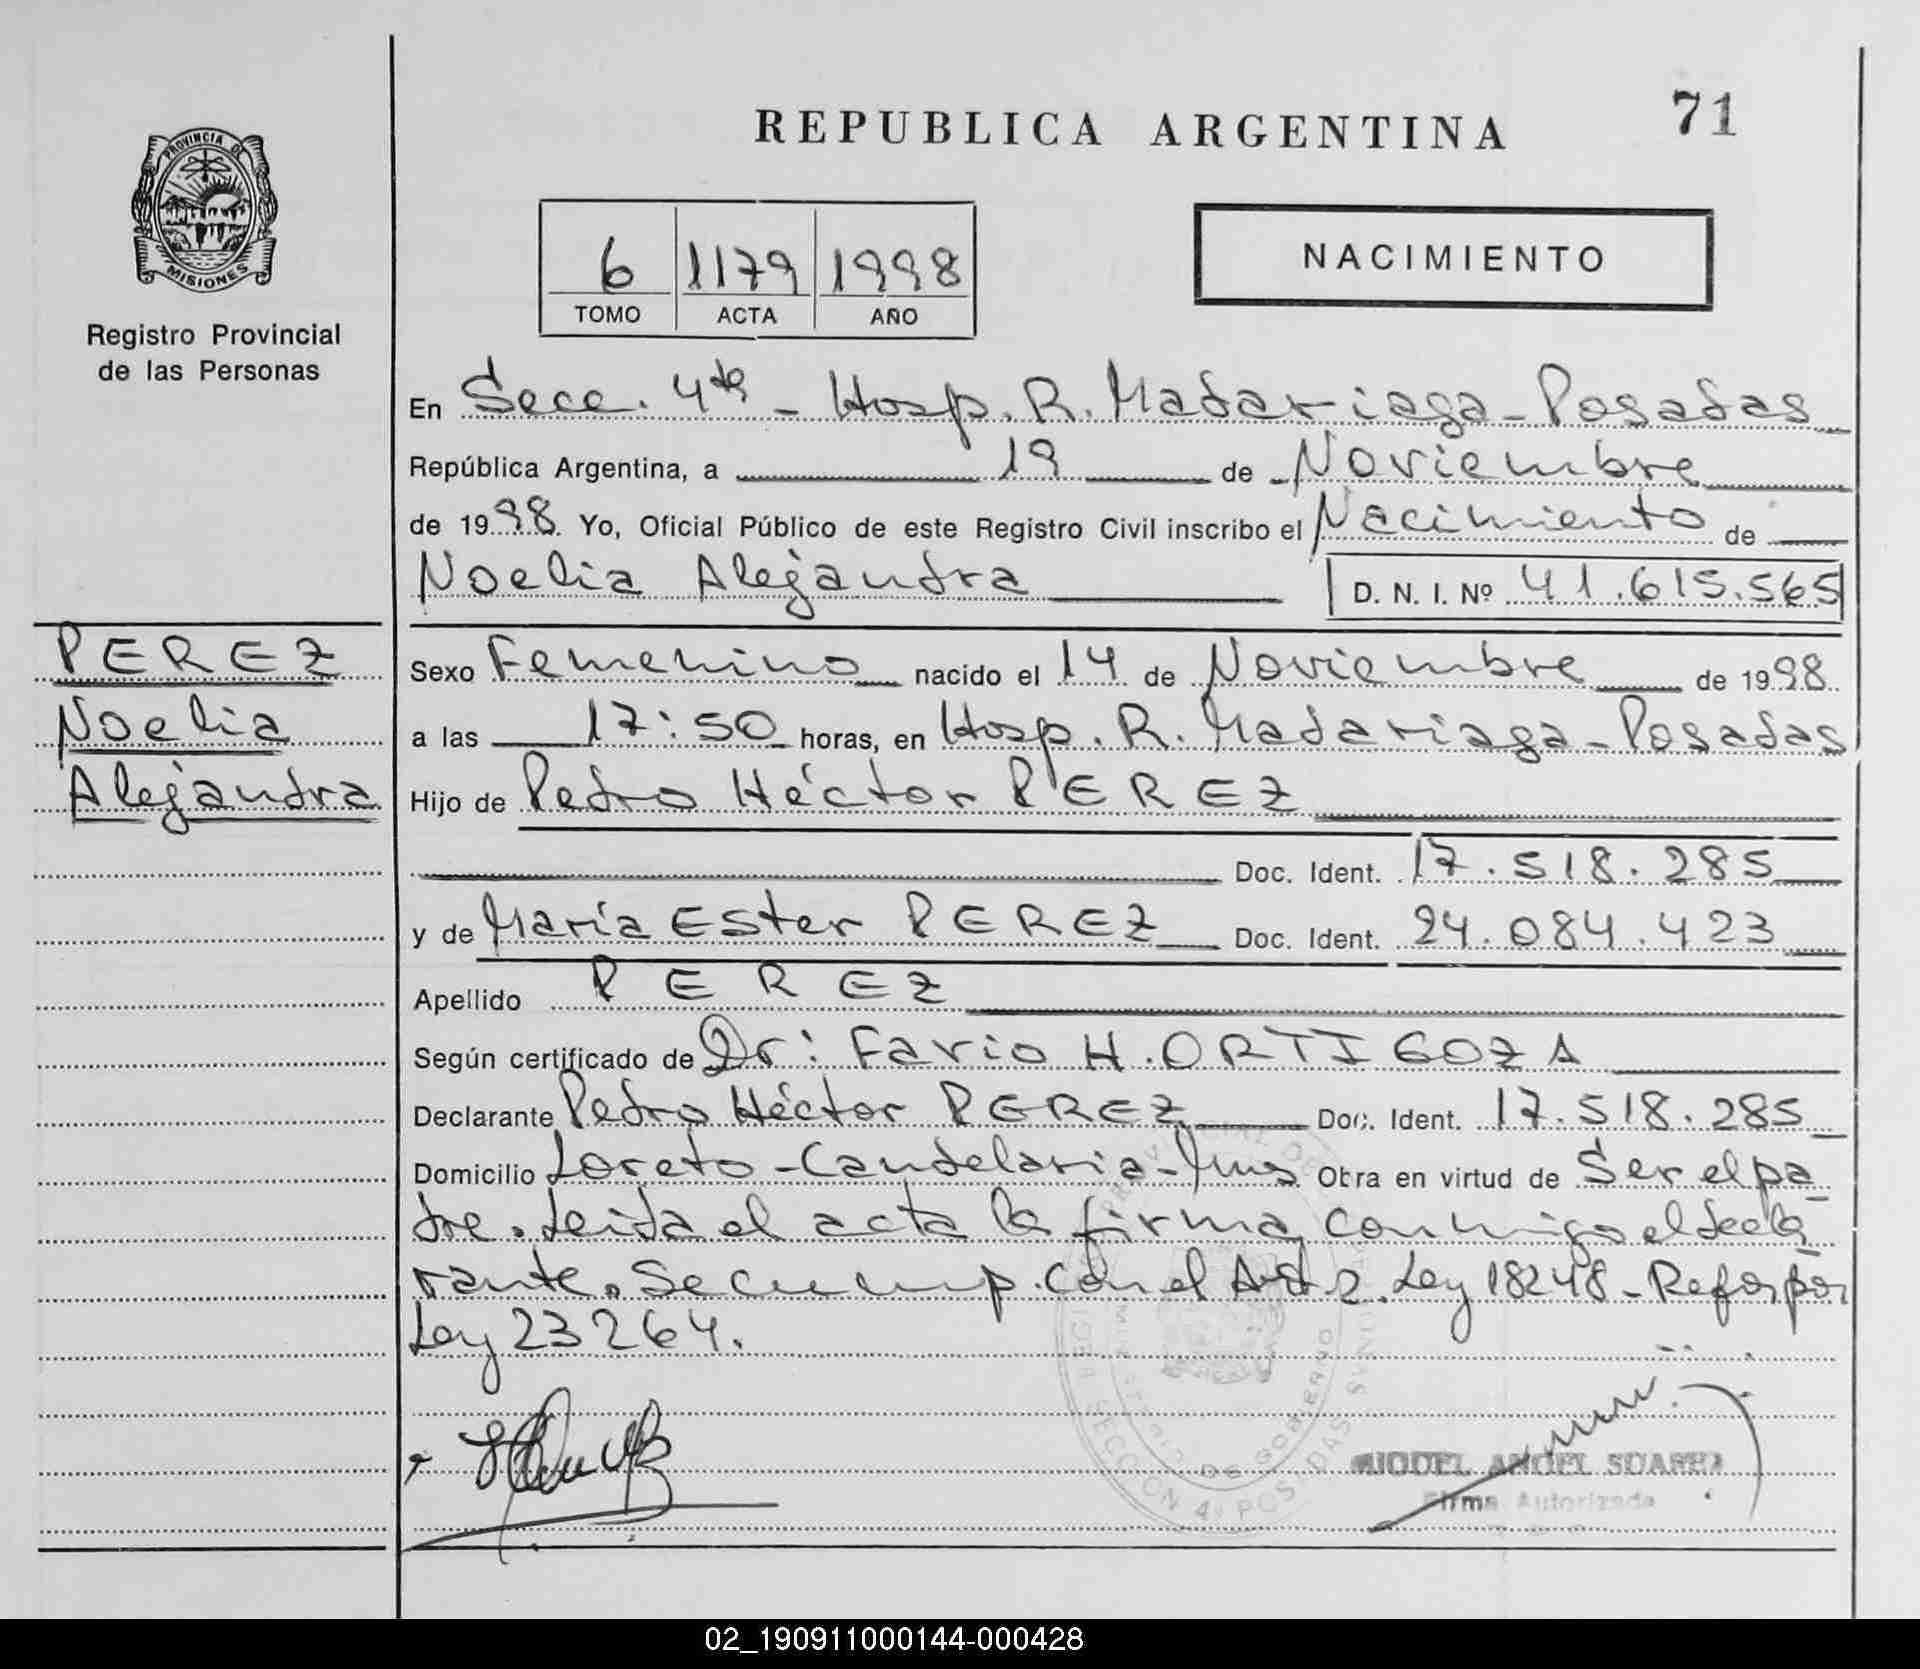 REPUBLICA ARGENTINA
71
PROVINCIA DE
MISIONES
Registro Provincial
de las Personas
6 1179 1998
TOMO ACTA AÑO
NACIMIENTO
En Secc. 4ta - Hosp. R. Madariaga - Posadas
República Argentina, a 19 de Noviembre
de 1998. Yo, Oficial Público de este Registro Civil inscribo el Nacimiento de
Noelia Alejandra D. N. I. Nº 41.615.565
PEREZ
Noelia
Alejandra
Sexo Femenino nacido el 14 de Noviembre de 1998
a las 17:50 horas, en Hosp. R. Madariaga - Posadas
Hijo de Pedro Héctor PEREZ
Doc. Ident. 17.518.285
y de María Ester PEREZ Doc. Ident. 24.084.423
Apellido PEREZ
Según certificado de Dr: Favio H. ORTIGOZA
Declarante Pedro Héctor PEREZ Doc. Ident. 17.518.285
Domicilio Loreto - Candelaria - Mns Obra en virtud de Ser el pa-
dre. Leída el acta la firma conmigo el decla-
rante. Se cump. con el Art 2. Ley 18248 - Refor por
Ley 23264.
SECCION 4ª POSADAS
MIGUEL ANGEL SUAREZ
Firma Autorizada
02_190911000144-000428